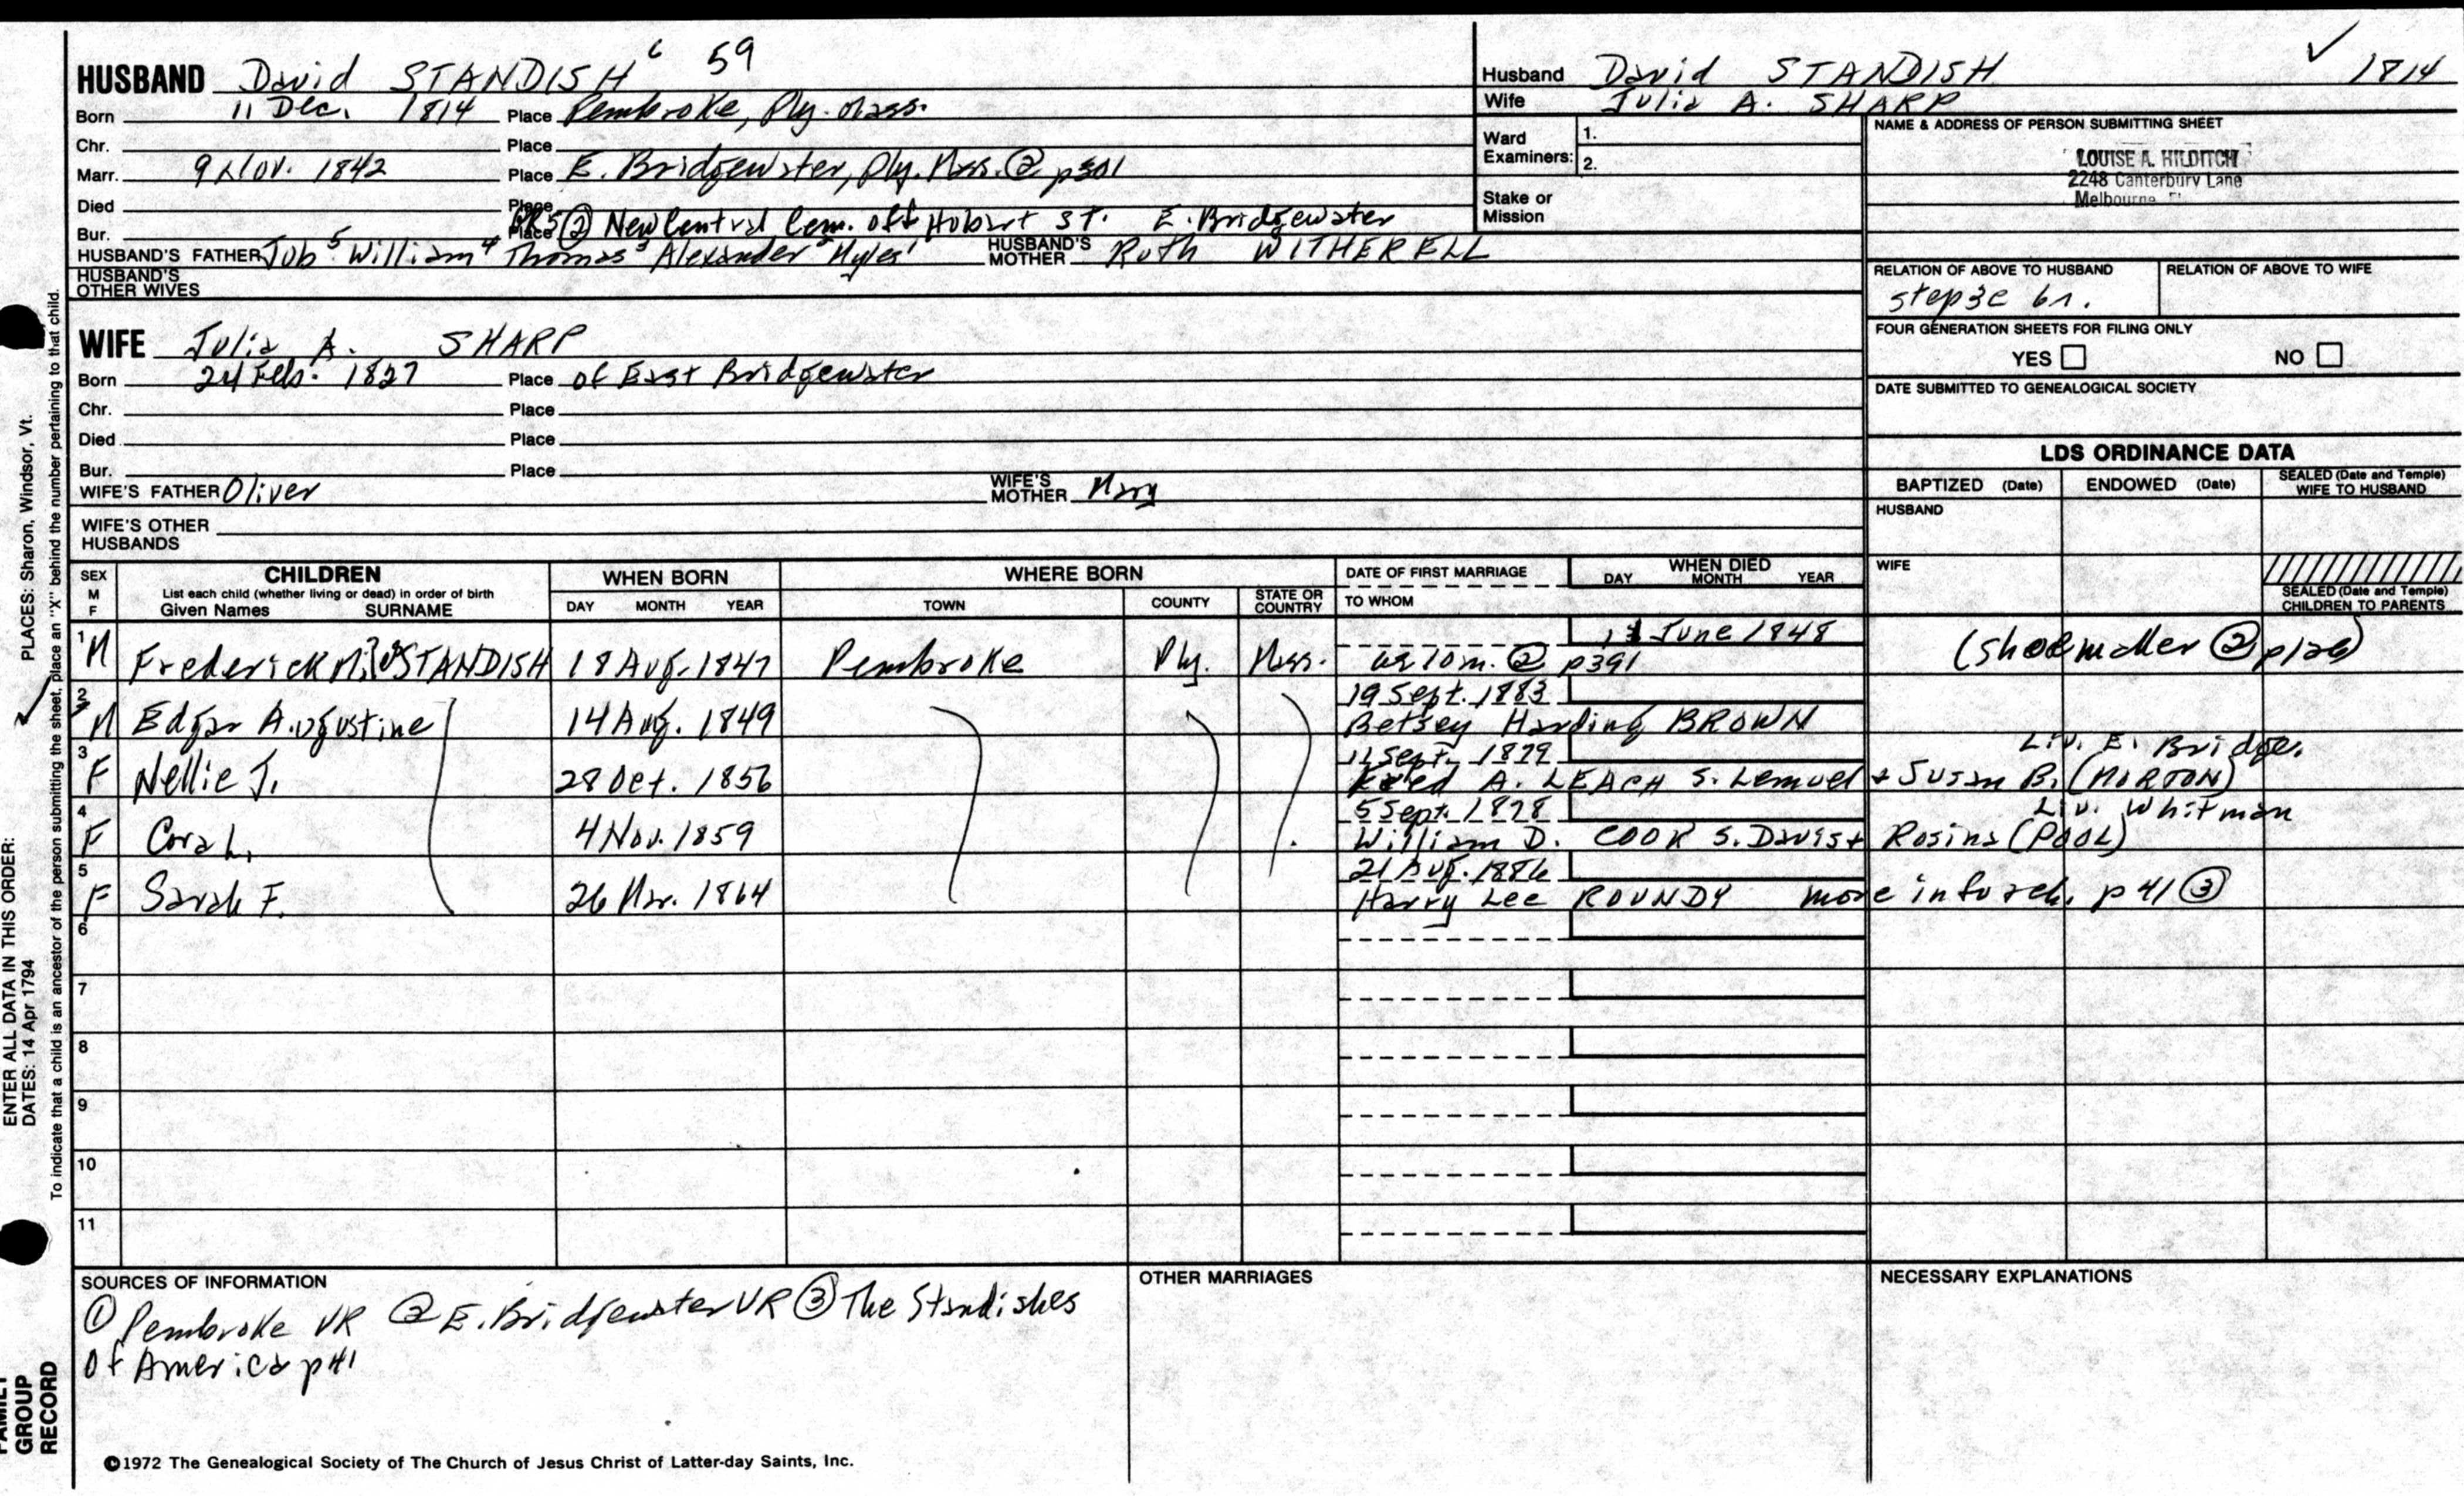 HUSBAND David STANDISH 6 59
Born 11 Dec. 1814 Place Pembroke, Ply. Mass.
Chr. Place
Marr. 9 Nov. 1842 Place E. Bridgewater, Ply. Mass. ② p301
Died Place
Bur. Place ② New Central Cem. off Hobart St. E. Bridgewater
HUSBAND'S FATHER Job 5 William 4 Thomas 3 Alexander 2 Myles 1 HUSBAND'S MOTHER Ruth WITHERELL
HUSBAND'S OTHER WIVES
Husband David STANDISH ✓ 1814
Wife Julia A. SHARP
Ward Examiners: 1. 2.
Stake or Mission
NAME & ADDRESS OF PERSON SUBMITTING SHEET
LOUISE A. HILDITCH
2248 Canterbury Lane
Melbourne
RELATION OF ABOVE TO HUSBAND RELATION OF ABOVE TO WIFE
step3c 6r.
FOUR GENERATION SHEETS FOR FILING ONLY
YES NO
DATE SUBMITTED TO GENEALOGICAL SOCIETY
WIFE Julia A. SHARP
Born 24 Feb. 1827 Place of East Bridgewater
Chr. Place
Died Place
Bur. Place
WIFE'S FATHER Oliver WIFE'S MOTHER Mary
WIFE'S OTHER HUSBANDS
LDS ORDINANCE DATA
BAPTIZED (Date) ENDOWED (Date) SEALED (Date and Temple) WIFE TO HUSBAND
HUSBAND
WIFE
SEALED (Date and Temple) CHILDREN TO PARENTS
SEX M F CHILDREN List each child (whether living or dead) in order of birth Given Names SURNAME
WHEN BORN DAY MONTH YEAR
WHERE BORN TOWN COUNTY STATE OR COUNTRY
DATE OF FIRST MARRIAGE TO WHOM
WHEN DIED DAY MONTH YEAR
1 M Frederick STANDISH 18 Aug. 1847 Pembroke Ply. Mass. June 1848
ae 10m. ② p391 (shoemaker ② p126)
2 M Edgar A.ugustine 14 Aug. 1849 19 Sept. 1883
Betsey Harding BROWN
3 F Nellie J. 28 Oct. 1856 Sept. 1879 Liv. E. Bridge.
A. LEACH s. Lemuel + Susan B. (NORTON)
4 F Cora L. 4 Nov. 1859 5 Sept. 1878 Liv. Whitman
William D. COOK s. Davis + Rosina (POOL)
5 F Sarah F. 26 Mar. 1864 21 Aug. 1886
Harry Lee ROUNDY more info p 41 ③
6
7
8
9
10
11
SOURCES OF INFORMATION
① Pembroke VR ② E. Bridgewater VR ③ The Standishes
Of America p41
OTHER MARRIAGES
NECESSARY EXPLANATIONS
©1972 The Genealogical Society of The Church of Jesus Christ of Latter-day Saints, Inc.
PLACES: Sharon, Windsor, Vt.
To indicate that a child is an ancestor of the person submitting the sheet, place an "X" behind the number pertaining to that child.
ENTER ALL DATA IN THIS ORDER:
DATES: 14 Apr 1794
GROUP
RECORD